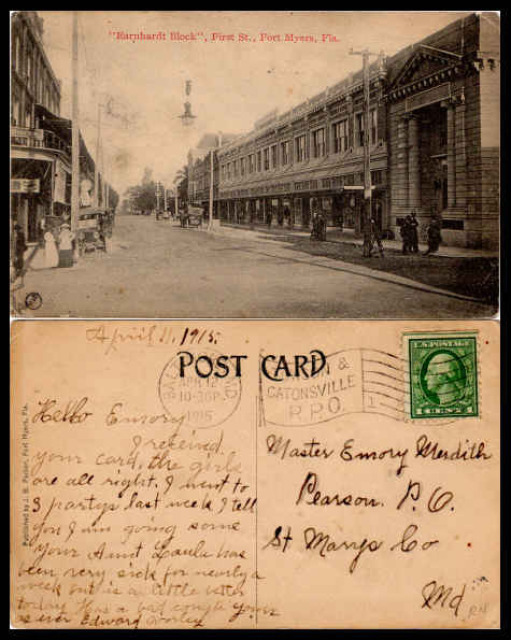 "Earnhardt Block", First St., Fort Myers, Fla.
April 11, 1915.
POST CARD
APR 12
10-30P
1915
MD
&
CATONSVILLE
R.P.O.
1
U.S. POSTAGE
1 CENT 1
Published by J. B. Parker, Fort Myers, Fla.
Hello Emory
I received
your card, the girls
are all right. I went to
3 partys last week I tell
you I am going some
your Aunt Laula has
been very sick for nearly a
week but is a little better
today Has a bad cough yours
as ever Edward
Master Emory Merdith
Pearson. P. O.
St Marys Co
Md